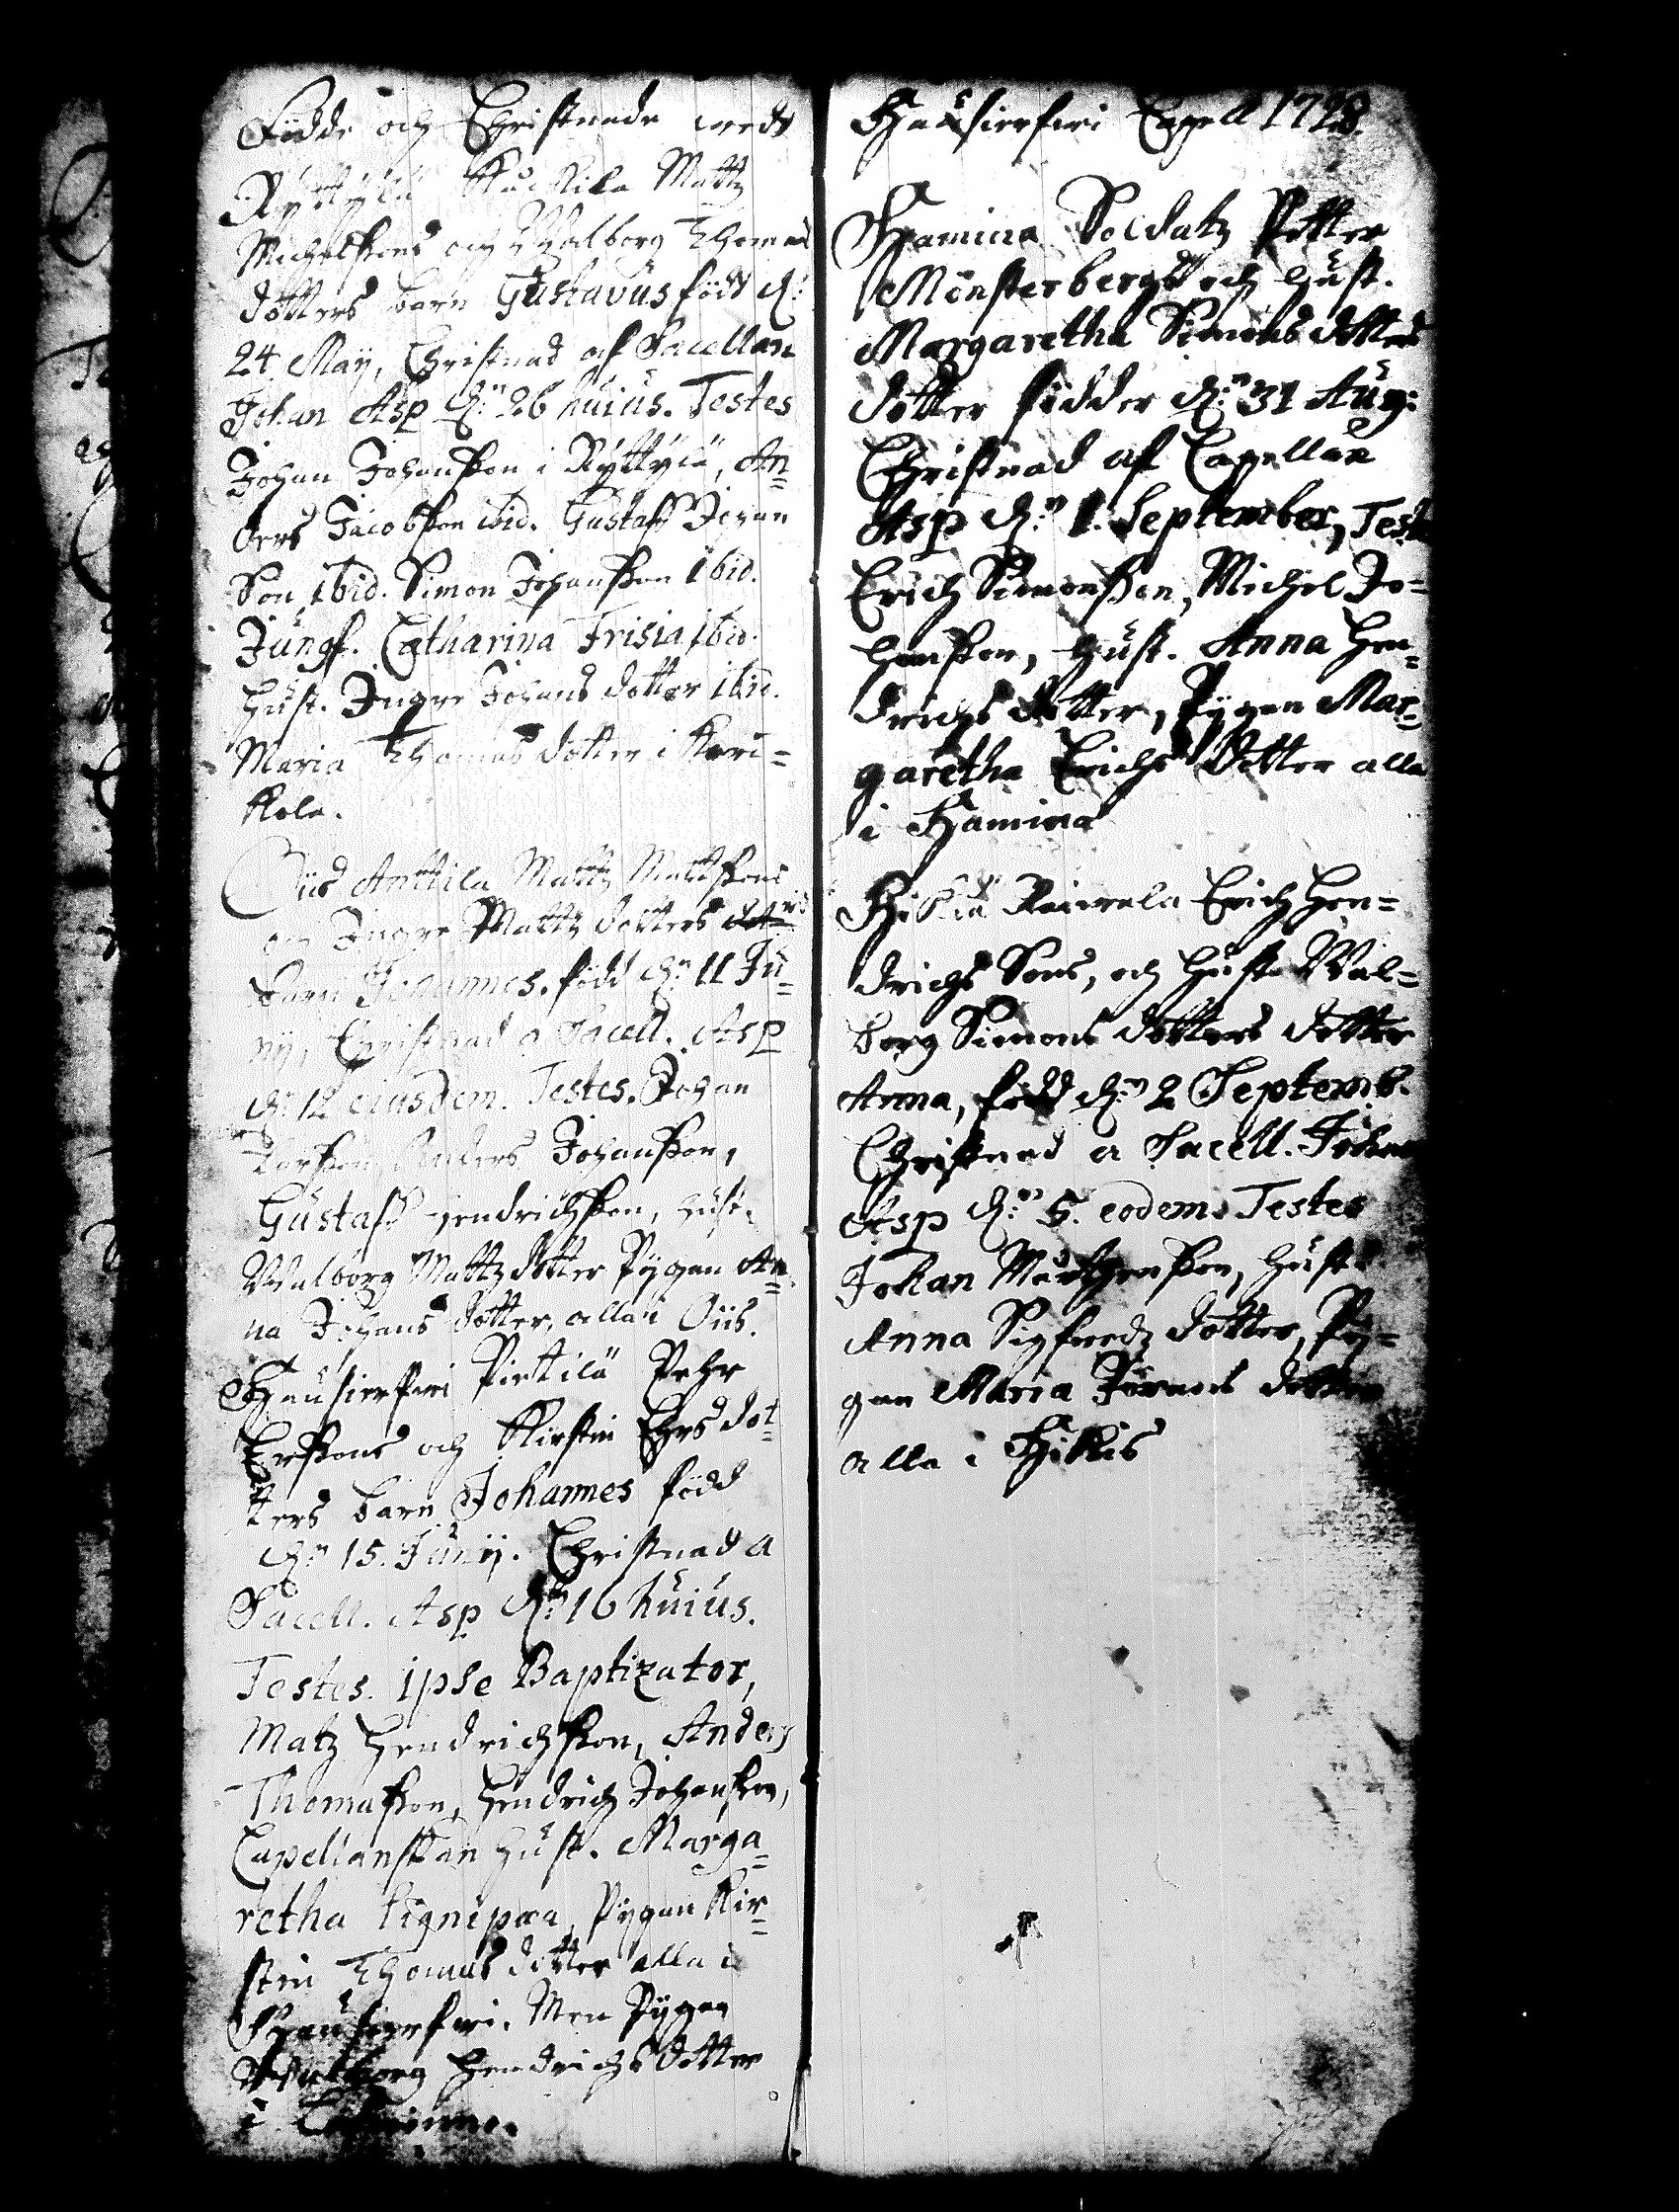 Födde och Christnade wedh
Ryttylä Kuckila Mattz
Michelssons och Walborg Thomas
dotters barn Gustavus född d:
24 Maÿ, Christnad af Sacellan
Johan Asp d:n 26 huius. Testes
Johan Johansson i Ryttylä, An=
ders Jacobsson ibid. Gustaff Johan
Son ibid. Simon Johansson ibid.
Jungf. Catharina Frisia ibid.
Hust. Ingre Johans dotter ibid.
Maria Thomas dotter i Kari=
kola.
Oiis Anttila Mattz Mattssons
och Ingre Mattz dotters
barn Johannes. född d:n 11 Ju=
nij, Christnad a Sacell. Asp
d:n 12 eiusdem. Testes. Johan
Larsson, Anders Johansson,
Gustaff Hendrichsson, Hust.
Walborg Mattz dotter Pygan An=
na Johans dotter, alla i Oiis.
Hausierfwi Piettilä Pehr
Erssons och Kirstin Ehrs dot=
ters barn Johannes född
d:n 15. Junij. Christnad a
Sacell. Asp d:n 16 huius.
Testes. ipse Baptizator,
Matz Hendrichsson, Anders
Thomasson, Hendrich Johansson,
Capellanskan Hust. Marga=
retha Lignipæa, Pygan Kir=
stin Thomas dotter alla i
Hausierfwi. Men Pygan
Walborg Hendrichs dotter
i
Hausierfwi Capell 1728.
Hamina Soldatz Petter
Mönsterbergs och Hust.
Margaretha Simons dotters
dotter födder d:n 31 Aug:
Christnad af Capellan
Asp d:n 1. September, Test
Erich Simonsson, Michel Jo=
hansson, Hust. Anna Hen=
drichs dotter, Pygan Mar=
garetha Erichs dotter alla
i Hamina
Hikiä Erich Hen=
drichs Sons, och Hust. Wal=
borg Simons dotters dotter
Anna, född d:n 2 Septemb.
Christnad a Sacell. Johan
Asp d:n 5. eodem. Testes
Johan Mårthensson, Hust.
Anna Sigfredz dotter, Py=
gan Maria Jörans dotter
alla i Hikiä